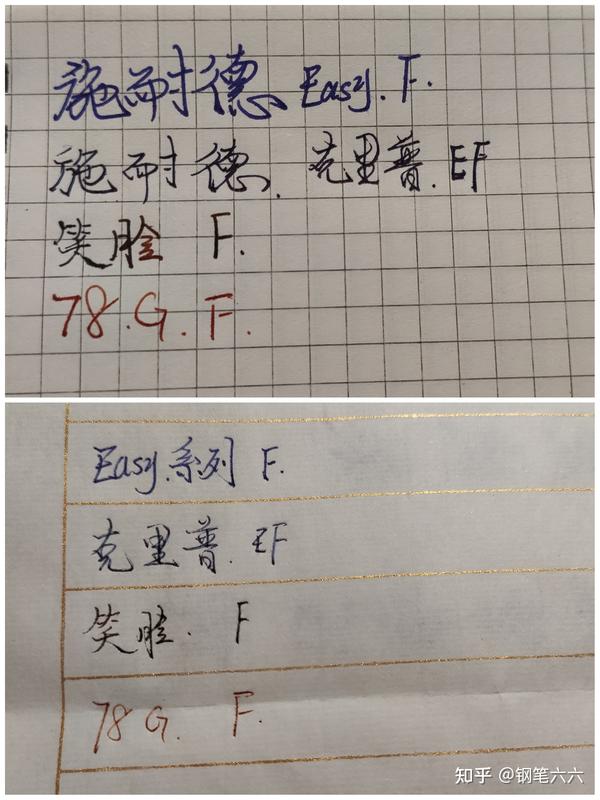 施耐德 Easy. F.
施耐德. 克里普. EF
笑脸 F.
78.G. F.
Easy.系列 F.
克里普. EF
笑脸. F
78G. F.
知乎 @钢笔六六